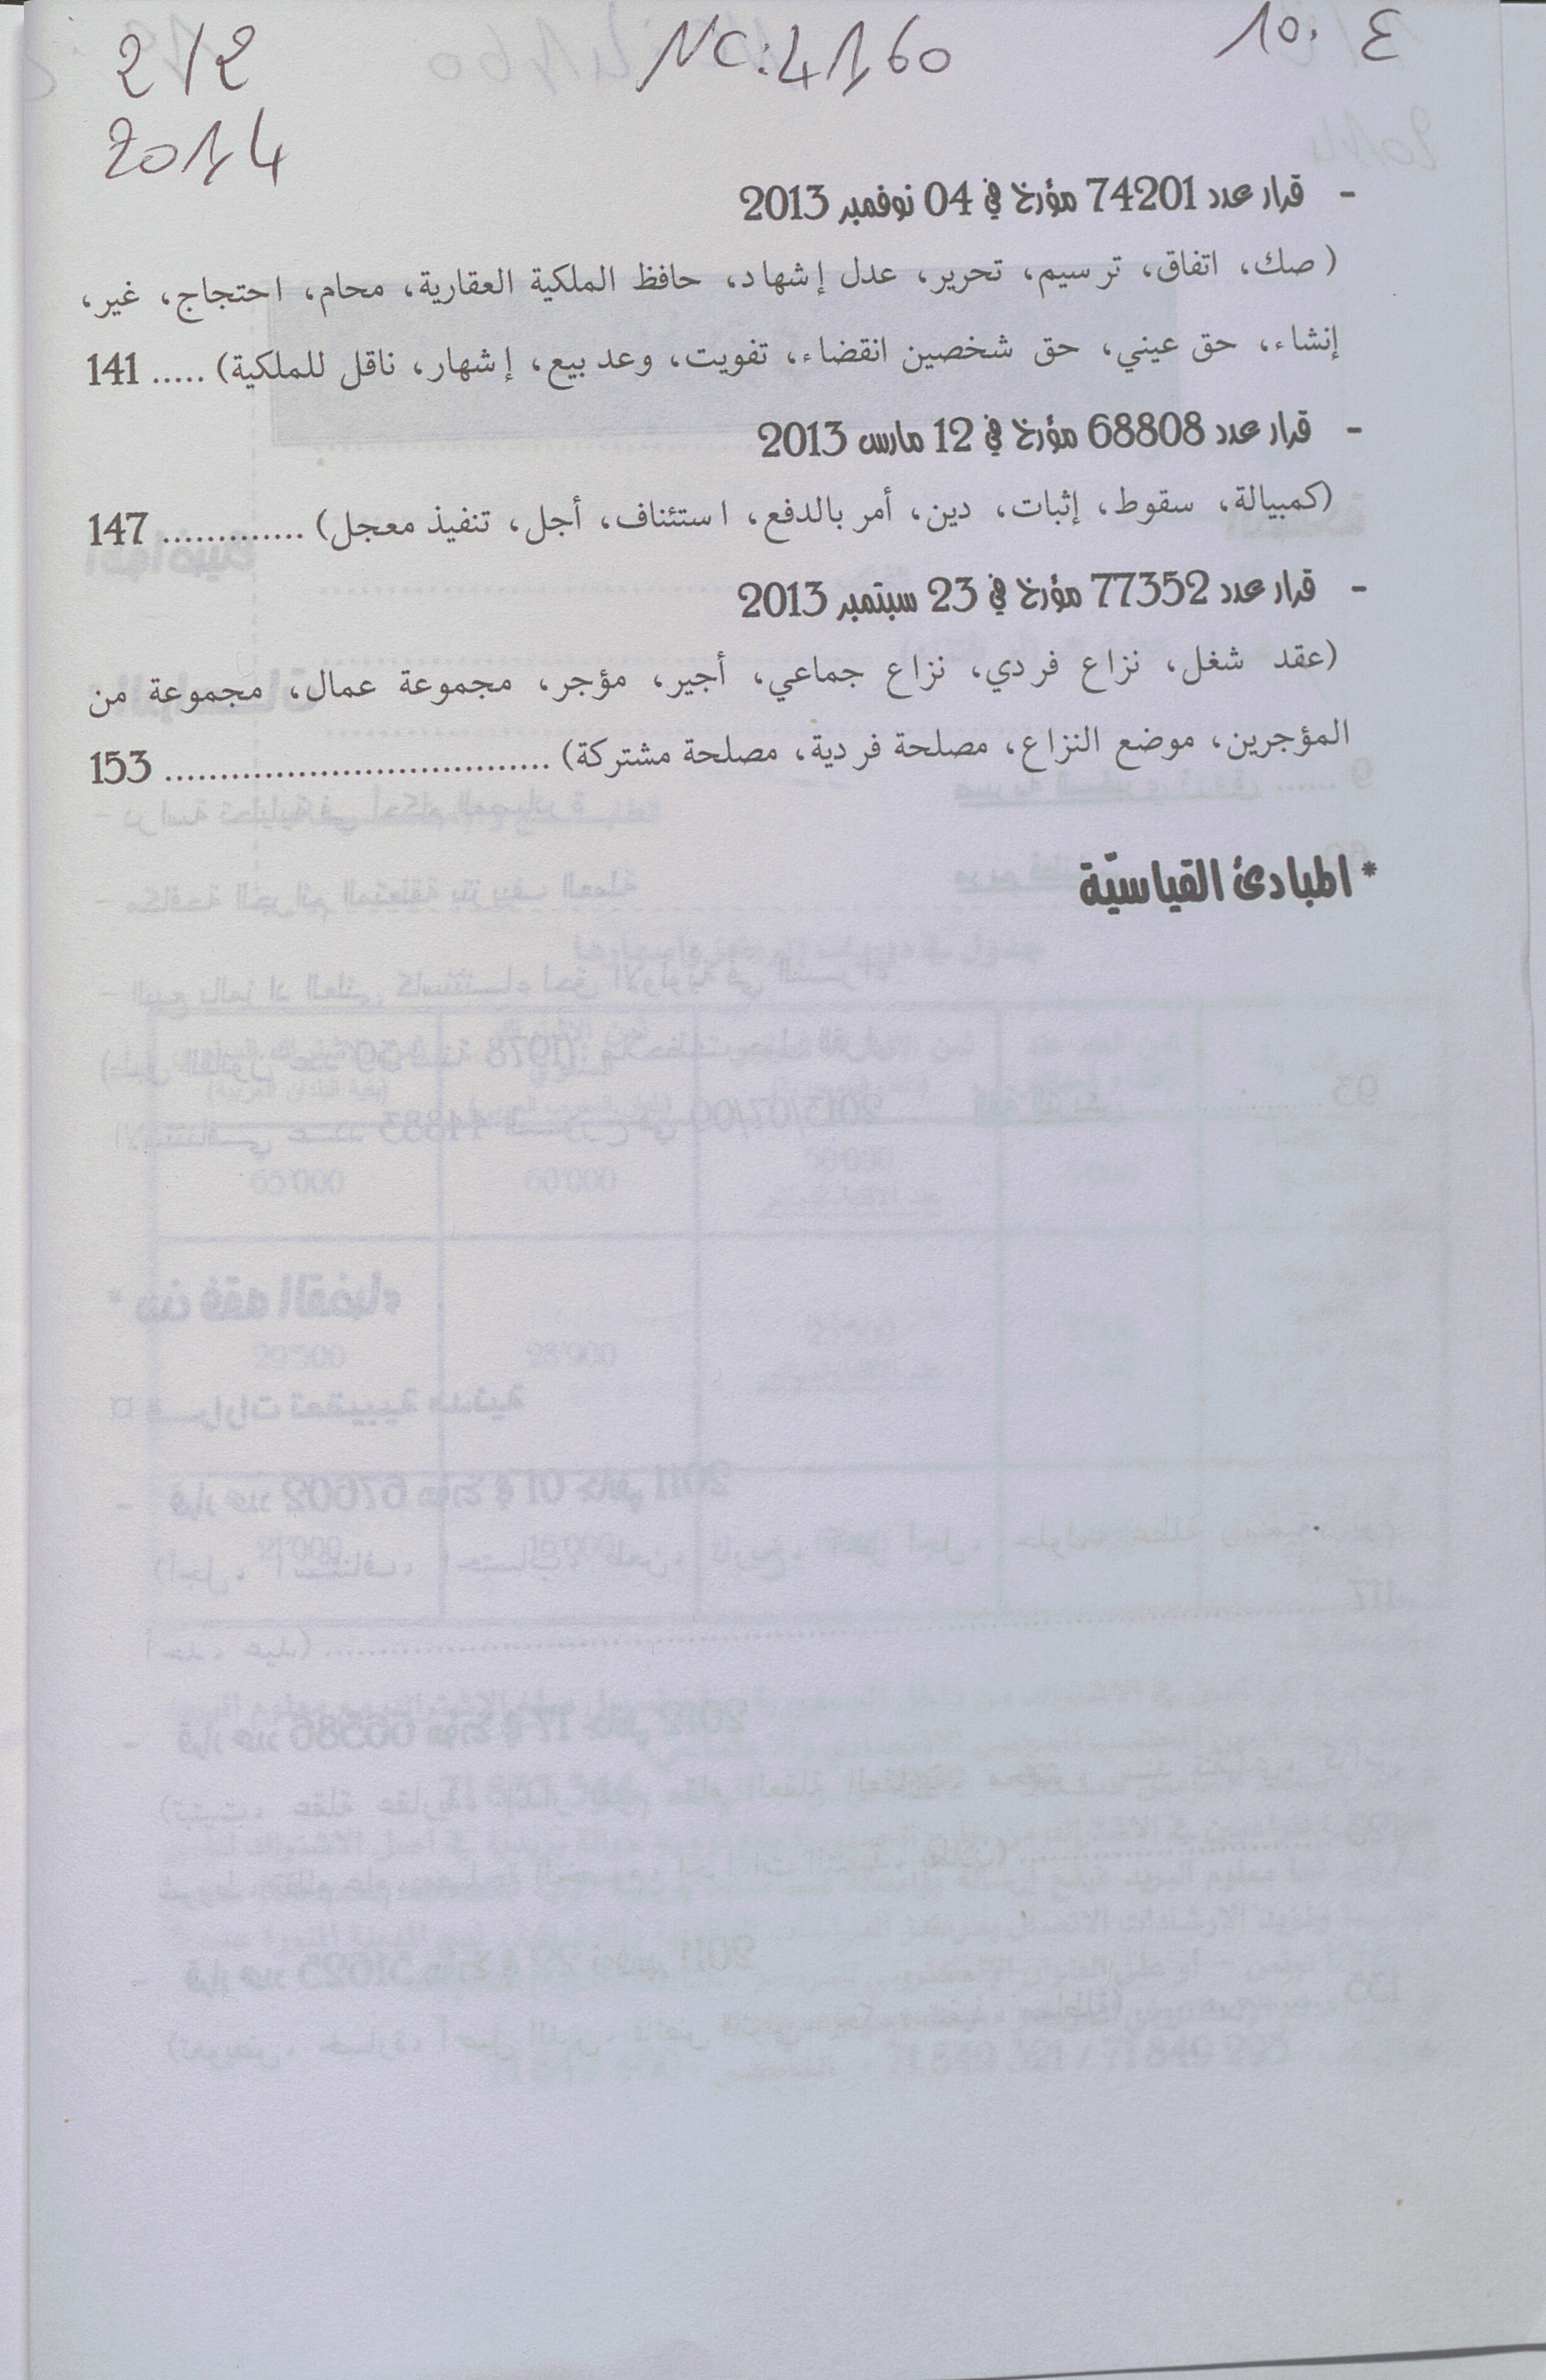 10. ع
NC:4160
2/2
2014
- قرار عدد 74201 مؤرخ في 04 نوفمبر 2013
( صك، اتفاق، ترسيم، تحرير، عدل إشهاد، حافظ الملكية العقارية، محام، احتجاج، غير،
إنشاء، حق عيني، حق شخصين انقضاء، تفويت، وعد بيع، إشهار، ناقل للملكية) ..... 141
- قرار عدد 68808 مؤرخ في 12 مارس 2013
(كمبيالة، سقوط، إثبات، دين، أمر بالدفع، استئناف، أجل، تنفيذ معجل) ............. 147
- قرار عدد 77352 مؤرخ في 23 سبتمبر 2013
(عقد شغل، نزاع فردي، نزاع جماعي، أجير، مؤجر، مجموعة عمال، مجموعة من
المؤجرين، موضع النزاع، مصلحة فردية، مصلحة مشتركة) ................................... 153
* المبادئ القياسيّة